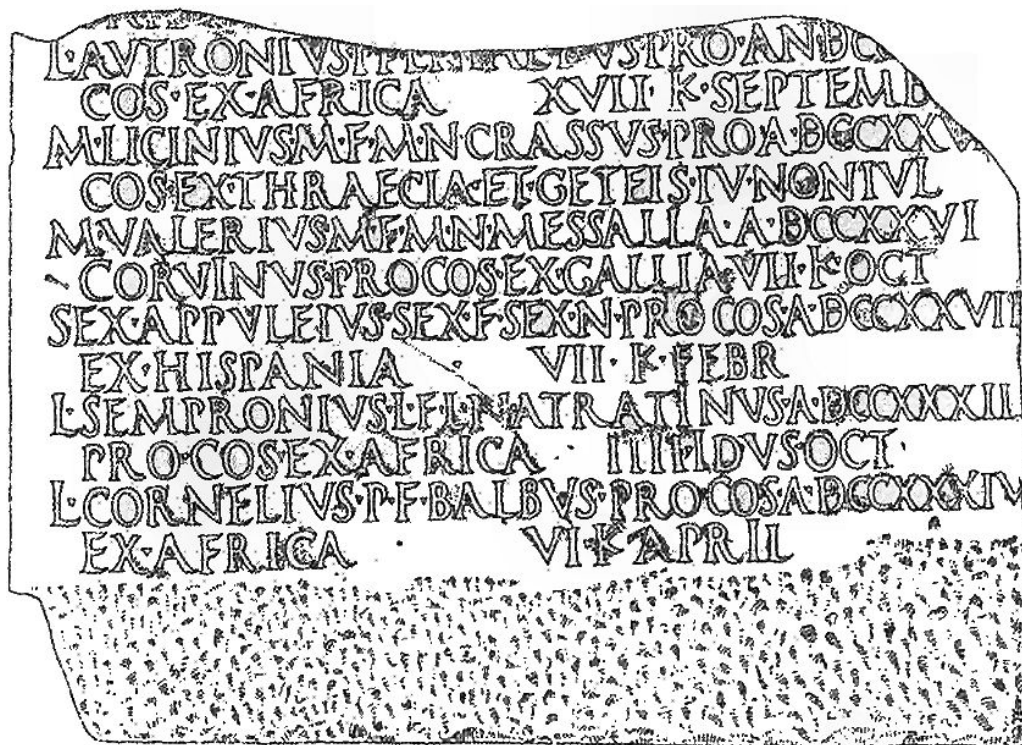 L·AVTRONIVS·P·F·L· PAETVS·PRO·AN·DCC
COS·EX·AFRICA XVII·K·SEPTEMB
M·LICINIVS·M·F·M·N·CRASSVS·PRO·A·DCCXXVI
COS·EX·THRAECIA·ET·GETEIS·IV·NON·IVL
M·VALERIVS·M·F·M·N·MESSALLA·A·DCCXXVI
CORVINVS·PRO·COS·EX·GALLIA·VII·K·OCT
SEX·APPVLEIVS·SEX·F·SEX·N·PRO·COS·A·DCCXXVII
EX·HISPANIA VII·K·FEBR
L·SEMPRONIVS·L·F·L·N·ATRATINVS·A·DCCXXXII
PRO·COS·EX·AFRICA IIII·IDVS·OCT·
L·CORNELIVS·P·F·BALBVS·PRO·COS·A·DCCXXXIV
EX·AFRICA VI·K·APRIL